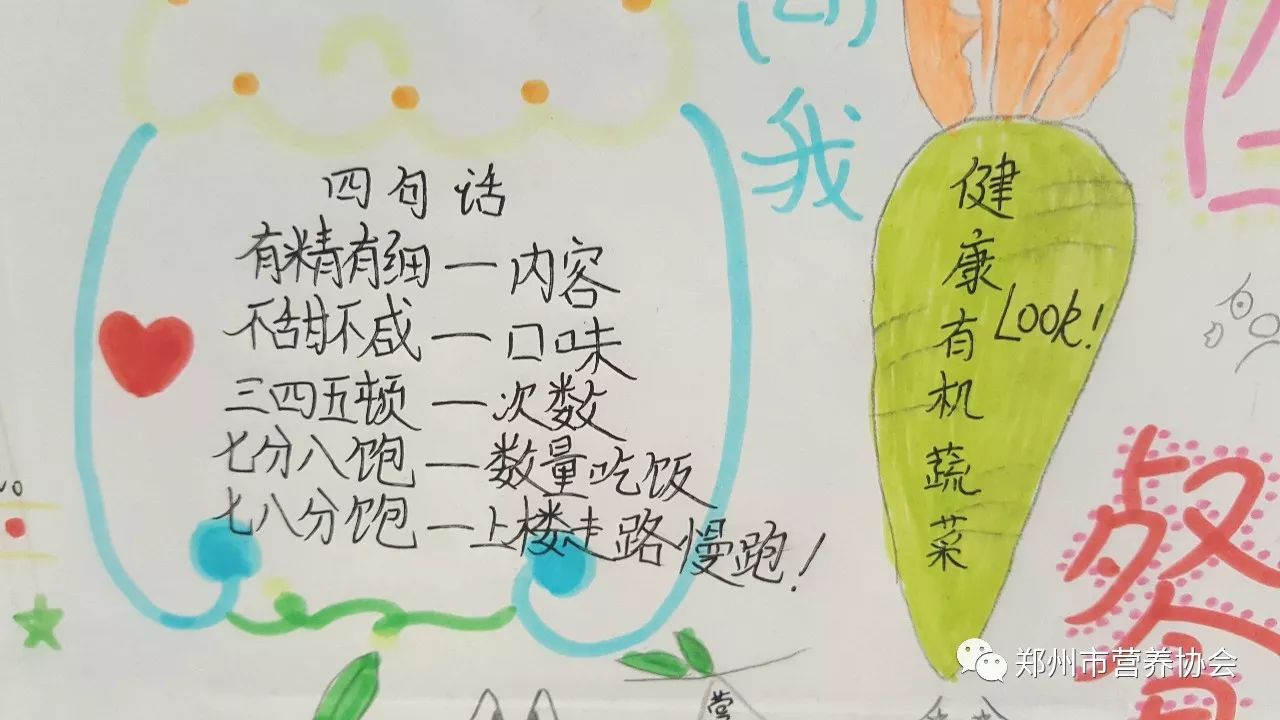 四句话
有精有细一内容
不甜不咸一口味
三四五顿一次数
七分八饱一数量吃饭
七八分饱一上楼走路慢跑!
我
健康有机蔬菜
Look!
餐
营
郑州市营养协会